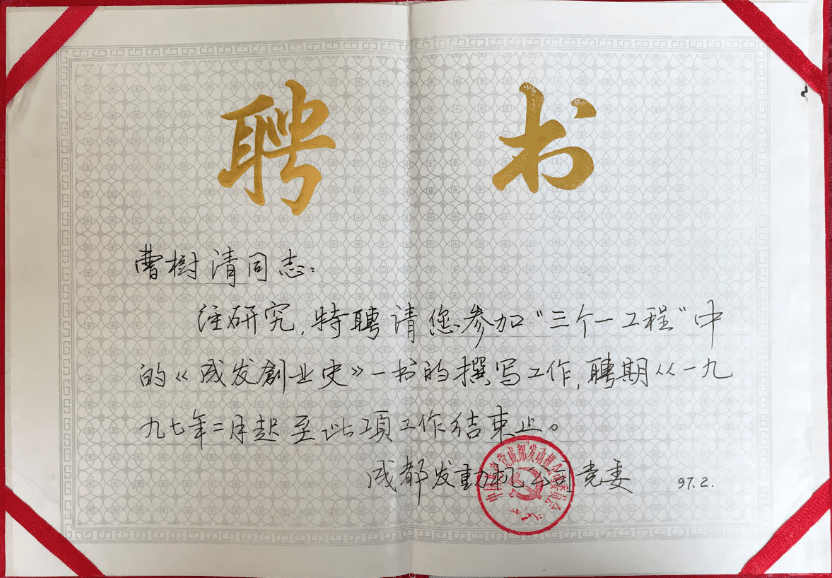 聘书
曹樹清同志：
经研究，特聘请您参加“三个一工程”中
的《成发創业史》一书的撰写工作，聘期从一九
九七年二月起至此项工作结束止。
成都发動机公司党委 97.2.